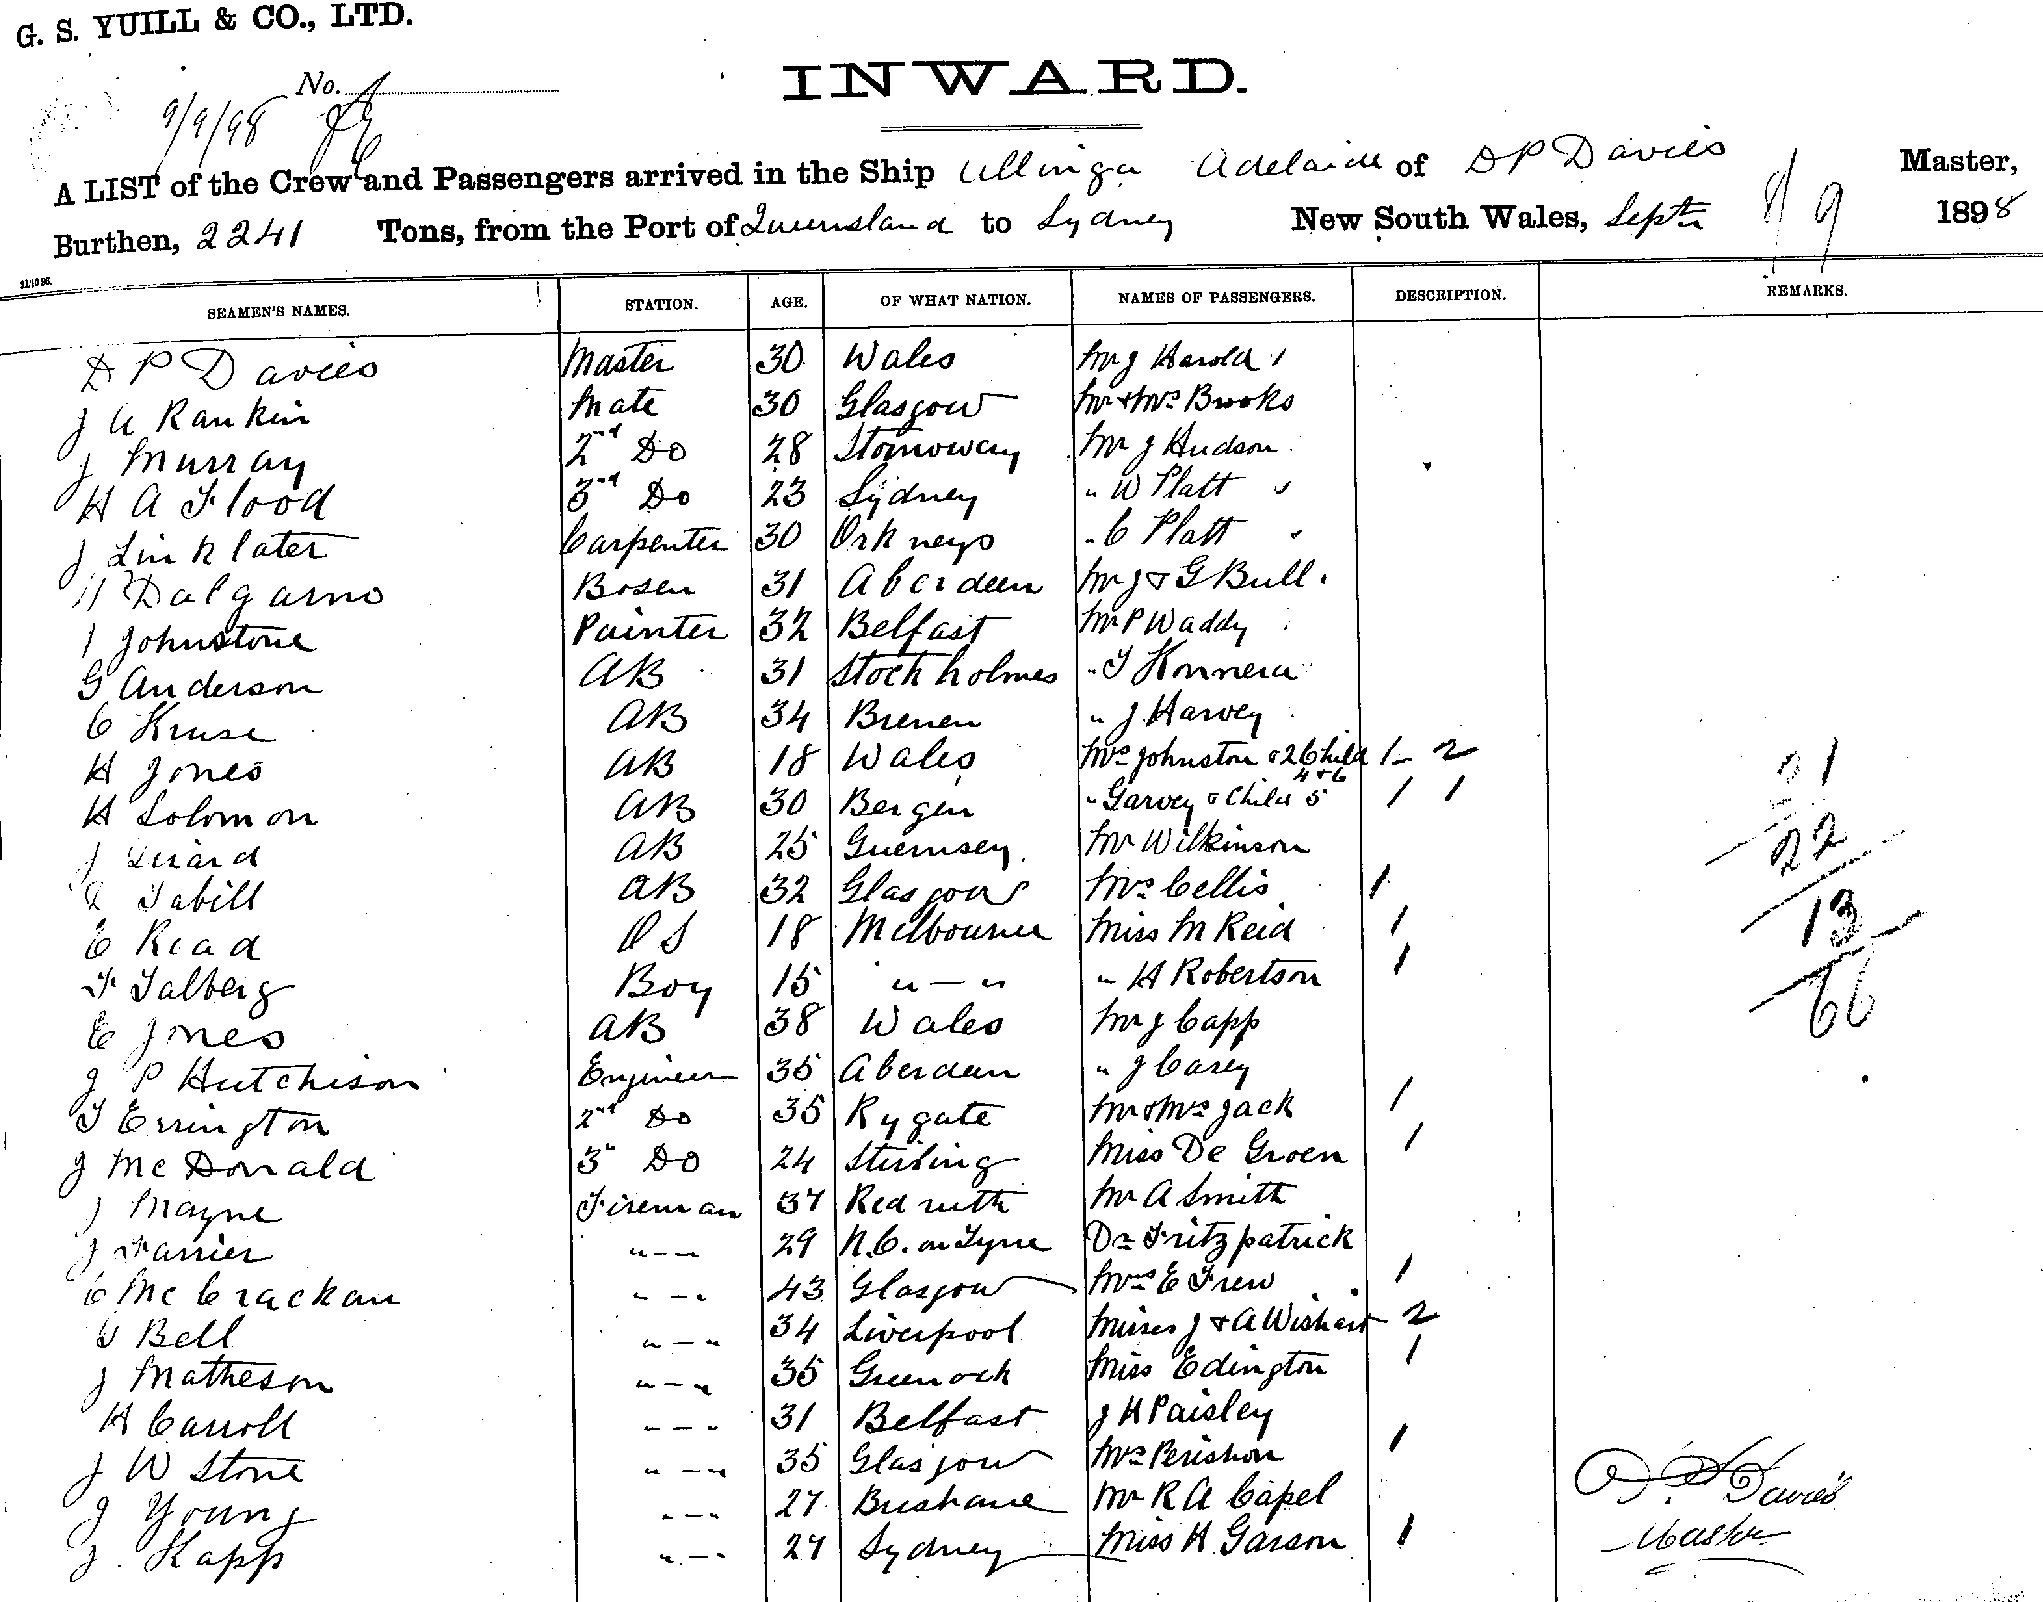 G. S. YUILL & CO., LTD.
No.
9/9/98
INWARD.
A LIST of the Crew and Passengers arrived in the Ship Ullinga Adelaide of D P Davies Master,
Burthen, 2241 Tons, from the Port of Queensland to Sydney New South Wales, Septr 8/9 1898
SEAMEN'S NAMES. STATION. AGE. OF WHAT NATION. NAMES OF PASSENGERS. DESCRIPTION. REMARKS.
D P Davies Master 30 Wales Mr J Harold 1
J A Rankin Mate 30 Glasgow Mr & Mrs Brooks
J Murray 2nd Do 28 Stornoway Mr J Hudson
H A Flood 3rd Do 23 Sydney " W Platt
J Linklater Carpenter 30 Orkneys " C Platt
Dalgarno Bosen 31 Aberdeen Mr J & G Bull
J Johnstone Painter 32 Belfast Mr P Waddy
G Anderson AB 31 Stockholmes " T
C Kruse AB 34 Bremen " J Harvey
H Jones AB 18 Wales Mrs Johnston & 2 Child 1 - 2
4 & 6
H Solomon AB 30 Bergen " Garvey & Child 5 1 1
J AB 25 Guernsey Mr Wilkinson
Tabill AB 32 Glasgow Mrs Cellis 1
E Read OS 18 Melbourne Miss M Reid 1
F Talberg Boy 15 " — " " H Robertson 1
E Jones AB 38 Wales Mr J Capp
J P Hutchison Engineer 35 Aberdeen " J Casey
T Errington 2nd Do 35 Rygate Mr & Mrs Jack 1
J McDonald 3rd Do 24 Stirling Miss De Groen 1
J Mayne Fireman 37 Redruth Mr A Smith
J Farrier " — — 29 N.C. on Tyne Dr Fritzpatrick
C McCrackan " — " 43 Glasgow Mrs E Frew 1
G Bell " — " 34 Liverpool Misses J & A Wishart 2
J Matheson " — " 35 Greenock Miss Edington 1
H Carroll " — " 31 Belfast J H Paisley
J W Stone " — " 35 Glasgow Mrs Perishon 1
J Young " — " 27 Brisbane Mr R A Capel
J. Kapp " — " 27 Sydney Miss H Garson 1
31
22
13
66
D. P. Davies
Master